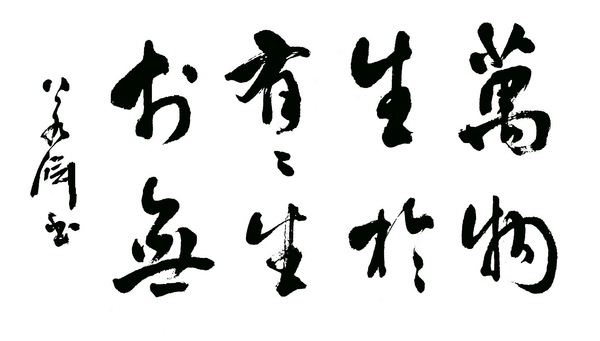 萬物
生於
有〻生
於無